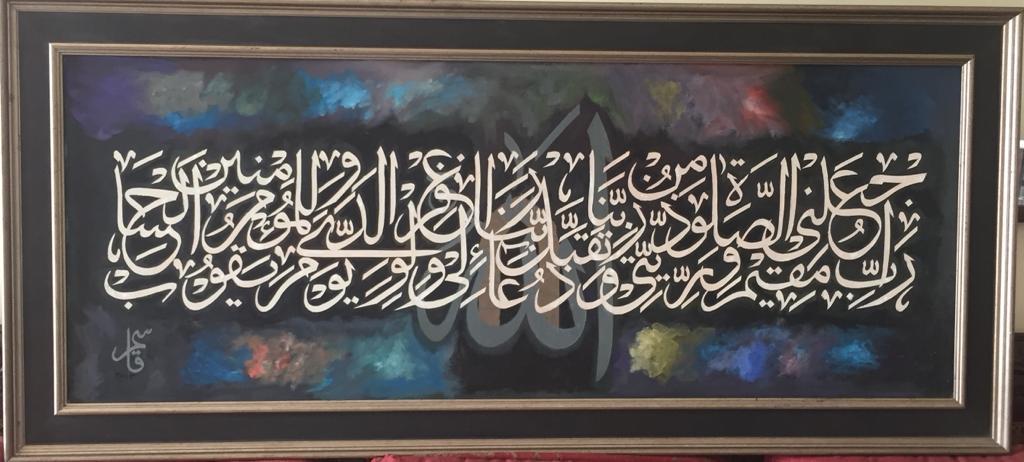 رب اجعلني مقيم الصلوة ومن ذريتي ربنا وتقبل دعاء ربنا اغفر لي ولوالدي وللمؤمنين يوم يقوم الحساب
الله
قاسم